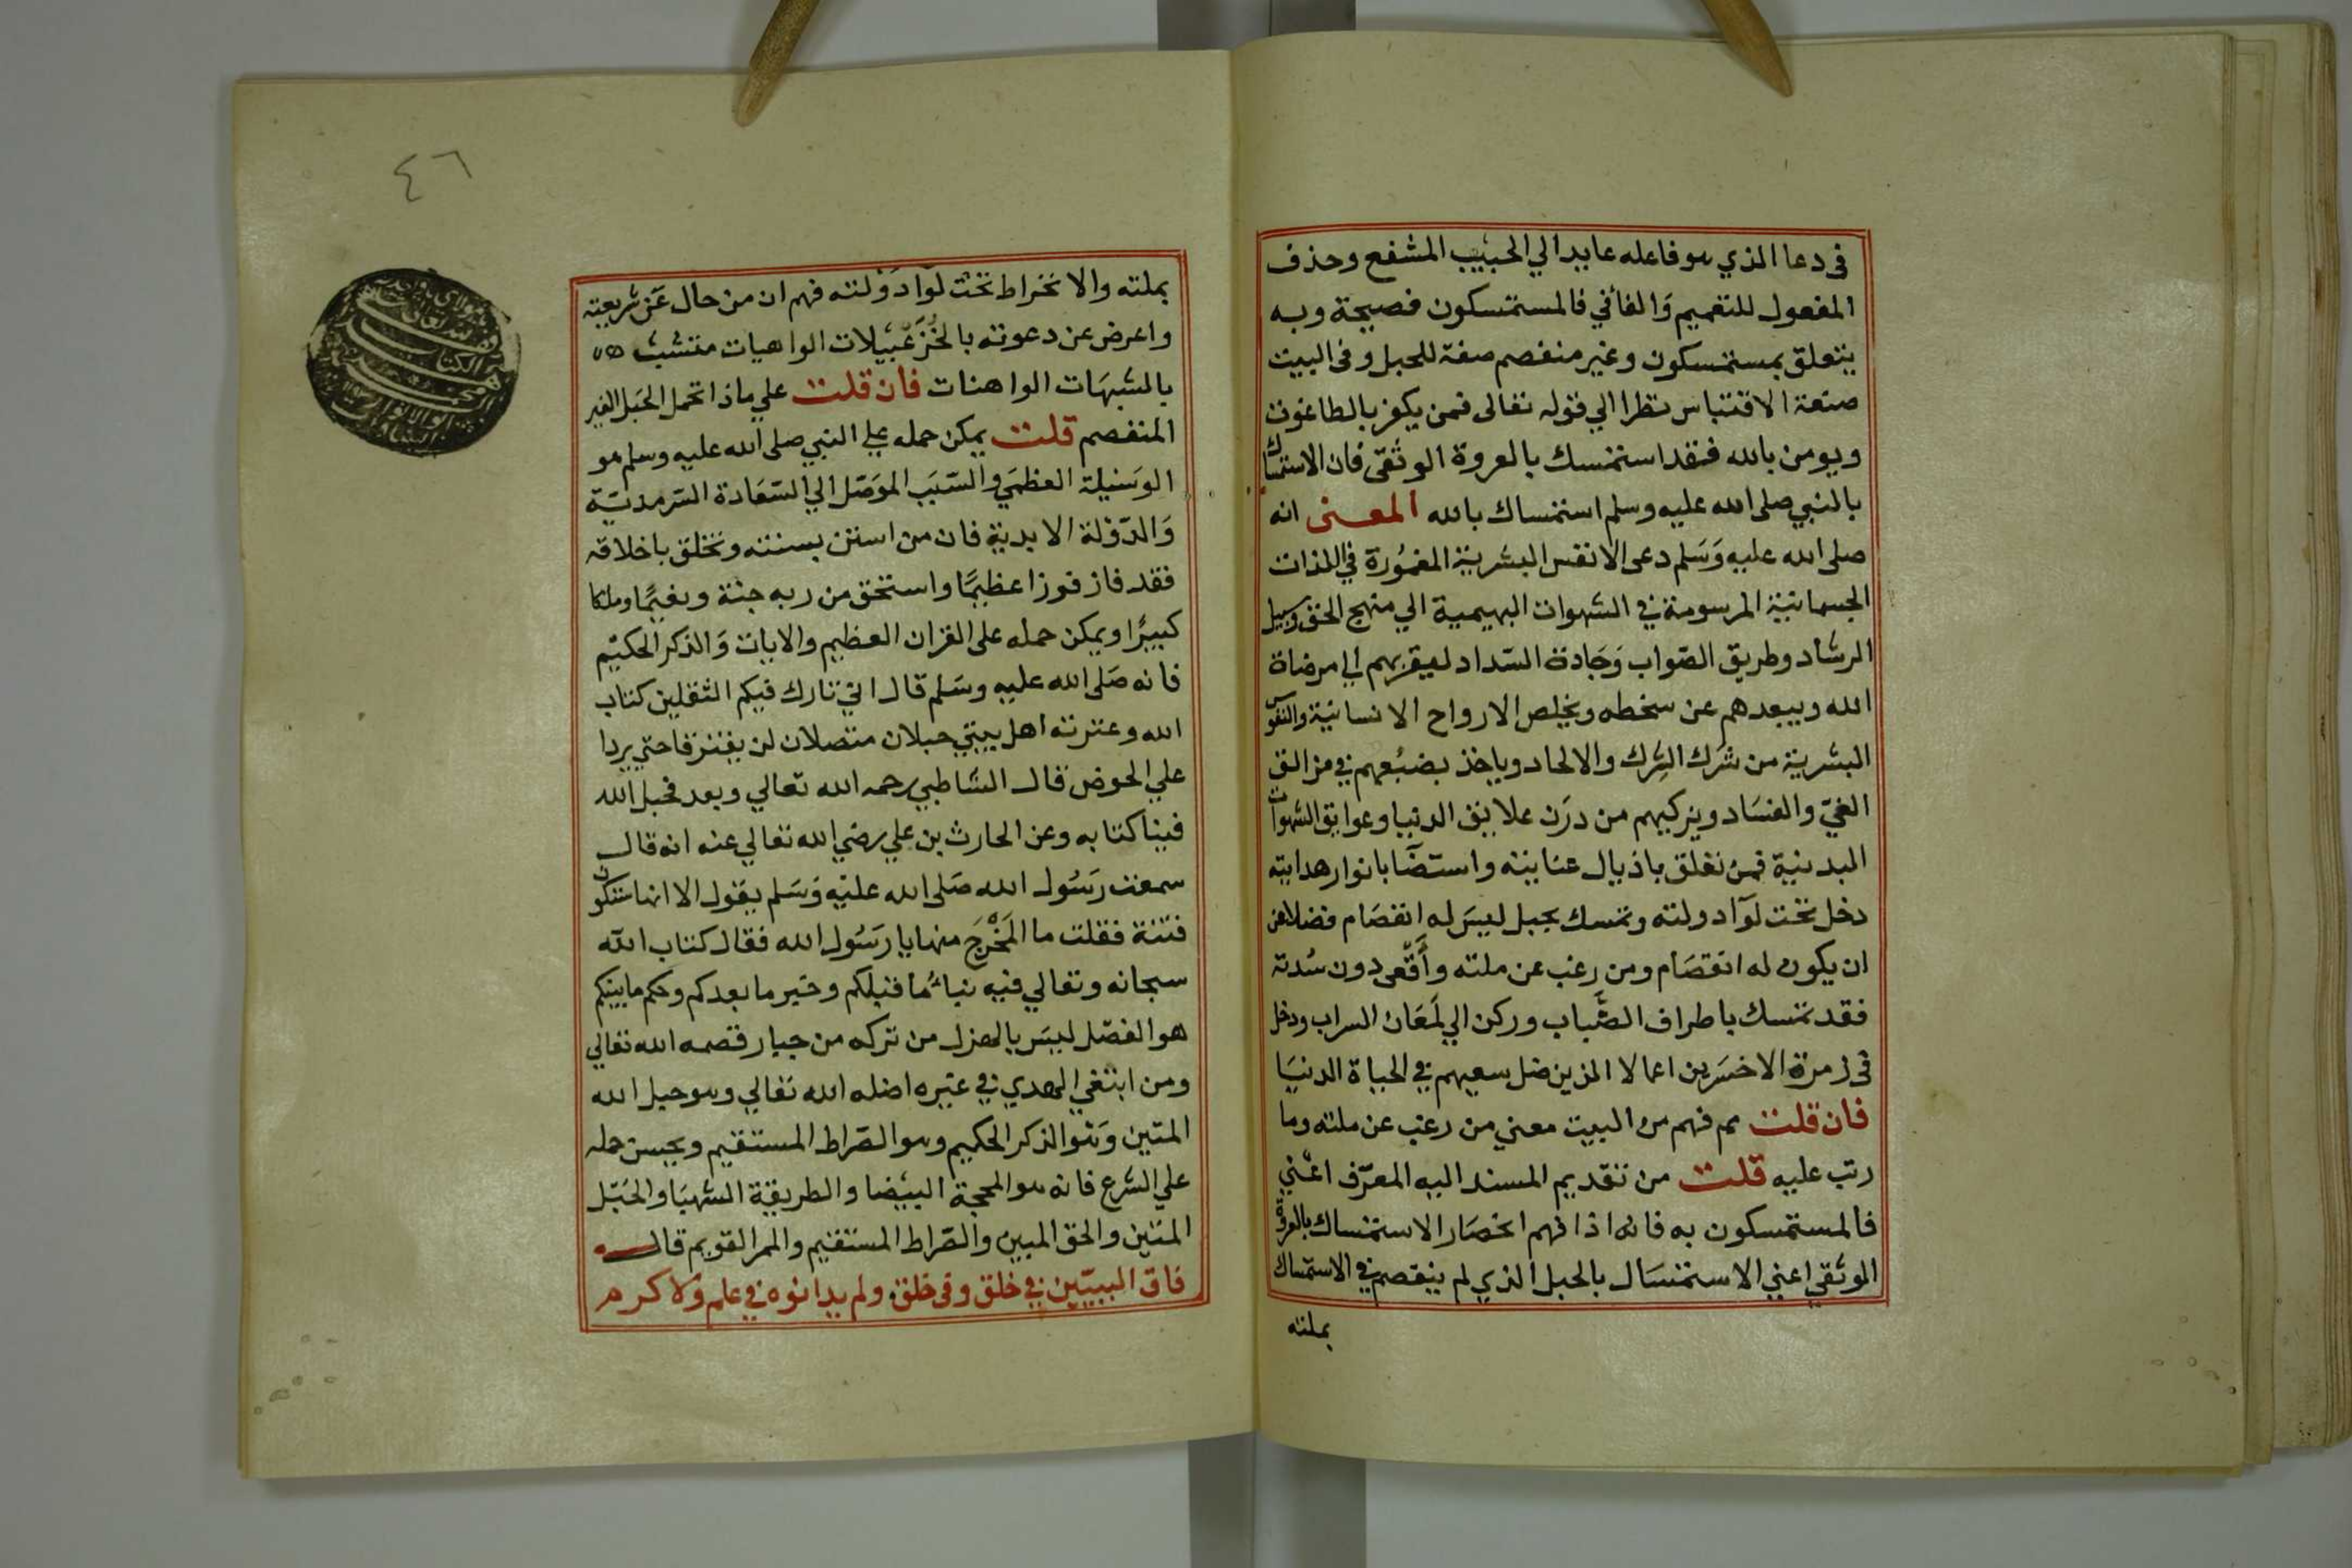 في دعا الذي هو فاعله عايدا الي الحبيب المشفع وحذف
المفعول للتعميم وَالفا في فالمستمسكون فصيحة وبه
يتعلق بمستمسكون وغير منفصم صفة للحبل وفي البيت
صنعة الاقتباس نظرا الي قوله تعالى فمن يكفر بالطاغوت
ويومن بالله فقد استمسك بالعروة الوثقى فان الاستمساك
بالنبي صلى الله عليه وسلم استمساك بالله المعنى انه
صلى الله عليه وَسَلم دعى الانفس البشرية المغمُورة في اللذات
الجسمانية المرسومة في الشهوات البهيمية الي منهج الحق وسبيل
الرشاد وطريق الصّواب وَجَادة السّداد ليقربهم الي مرضاة
الله ويبعدهم عن سخطه ويخلص الارواح الانسانية والنفوس
البشرية من شَرَك الشِرك والالحاد وياخذ بضبُعهم في مزالق
الغيّ والفسَاد ويزكيهم من درَن علايق الدنيا وعوايق الشهوات
البدنية فمن تعلق باذيال عنايته واستضآ بانوار هدايته
دخل تحت لوآ دولته وتمسك بحبل ليسَ له انفصَام فضلا عن
ان يكون له انقصَام ومن رغب عن ملته وأَقْعى دون سُدته
فقد تمسك باطراف الضَّباب وركن الي لَمَعَان السراب ودخل
في زمرة الاخسَرين اعمالا الذين ضل سعيهم في الحياة الدنيَا
فان قلت مم فهم من البيت معني من رغب عن ملته وما
رتب عليه قلت من تقديم المسند اليه المعرّف اعْني
فالمستمسكون به فانه اذا فهم انحصَار الاستمساك بالعروة
الوثقي اعني الاستمسَاك بالحبل الذي لم ينفصم في الاستمساك
بملته
٤٦
بملته والانخراط تحت لوا دَوْلته فهم ان من حال عَن شريعته
واعرض عن دعوته بالخُزَعْبَيلات الواهيات متشبث
بالشبهَات الواهنات فان قلت علي ماذا تحمل الحَبل الغير
المنفصم قلت يمكن حمله علي النبي صلى الله عليه وسلم هو
الوَسيلة العظمَي والسّبَب الموَصّل الي السّعَادة السّرمديّة
وَالدّوْلة الابدية فان من استن بسنته وتخلق باخلاقه
فقد فاز فوزا عظيمًا واستحق من ربه جنة ونعيمًا وملكا
كبيرًا ويمكن حمله على القران العظيم والايات وَالذكر الحكيم
فانه صَلى الله عليه وسَلم قال اني تارك فيكم الثقلين كتاب
الله وعترته اهل بيتي حبلان متصلان لن يفترقا حتي يردا
علي الحوض قال الشاطبي رحمه الله تعالي وبعد فحبل الله
فينا كتابه وعن الحارث بن علي رضي الله تعالي عنه انه قال
سمعت رَسُول الله صَلى الله عليْه وَسَلم يقول الا انها ستكون
فتنة فقلت ما المَخْرَجَ منها يا رَسُول الله فقال كتاب الله
سبحانه وتعالي فيه نبأ ما قبلكم وخير ما بعدكم وحكم ما بينكم
هو الفصَل ليسَ بالهزل من تركه من جبار قصمه الله تعالي
ومن ابتغي الهدي في غيره اضله الله تعالي وهو حبل الله
المتين وَهو الذكر الحكيم وهو الصّراط المستقيم ويحسن حمله
علي الشرع فانه هو المحجة البيْضا والطريقة الشهبَا والحَبْل
المتين والحق المبين والصّراط المستقيم والممر القويم قال
فاق النبيّين في خلق وفي خلق ولم يدانوه في علم ولا كرم